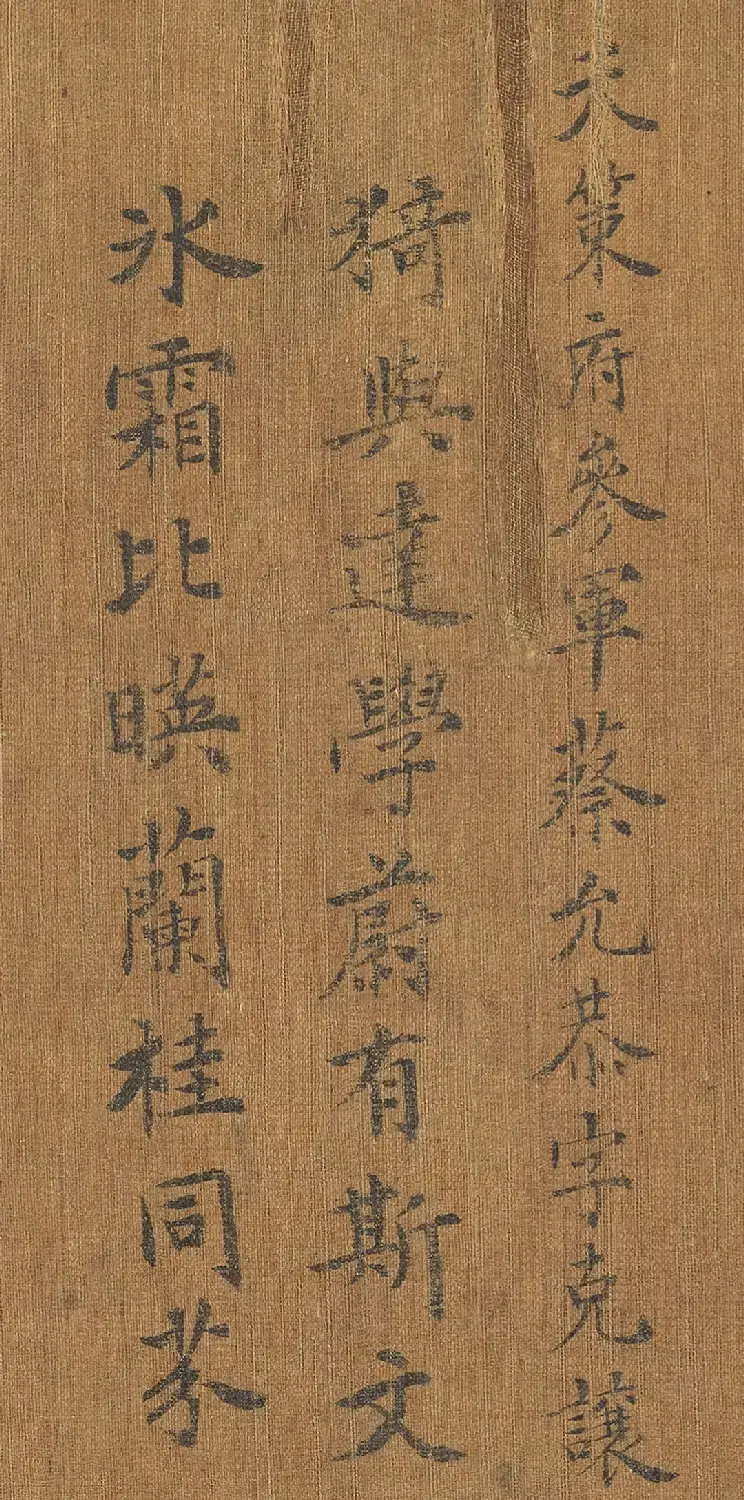 天策府參軍蔡允恭字克讓
猗與達學蔚有斯文
氷霜比暎蘭桂同芬